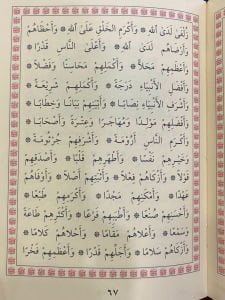 زُلْفَى لَدَى ٱللَّهِ * وَأَكْرَمِ الْخَلْقِ عَلَى ٱللَّهِ * وَأَحْظَاهُمْ
وَأَرْضَاهُمْ لَدَى ٱللَّهِ * وَأَعْلَى النَّاسِ قَدْرًا *
وَأَعْظَمِهِمْ مَحَلًّا * وَأَكْمَلِهِمْ مَحَاسِنًا وَفَضْلًا *
وَأَفْضَلِ الْأَنْبِيَاءِ دَرَجَةً * وَأَكْمَلِهِمْ شَرِيْعَةً *
وَأَشْرَفِ الْأَنْبِيَاءِ نِصَابًا * وَأَبْيَنِهِمْ بَيَانًا وَخِطَابًا *
وَأَفْضَلِهِمْ مَوْلِدًا وَمُهَاجَرًا وَعِتْرَةً وَأَصْحَابًا *
وَأَكْرَمِ النَّاسِ أَرُوْمَةً * وَأَشْرَفِهِمْ جُرْثُوْمَةً *
وَخَيْرِهِمْ نَفْسًا * وَأَطْهَرِهِمْ قَلْبًا * وَأَصْدَقِهِمْ
قَوْلًا * وَأَزْكَاهُمْ فِعْلًا * وَأَثْبَتِهِمْ أَصْلًا * وَأَوْفَاهُمْ
عَهْدًا * وَأَمْكَنِهِمْ مَجْدًا * وَأَكْرَمِهِمْ طَبْعًا *
وَأَحْسَنِهِمْ صُنْعًا * وَأَطْيَبِهِمْ فَرْعًا * وَأَكْثَرِهِمْ طَاعَةً
وَسَمْعًا * وَأَعْلَاهُمْ مَقَامًا * وَأَحْلَاهُمْ كَلَامًا *
وَأَزْكَاهُمْ سَلَامًا * وَأَجَلِّهِمْ قَدْرًا * وَأَعْظَمِهِمْ فَخْرًا
٦٧